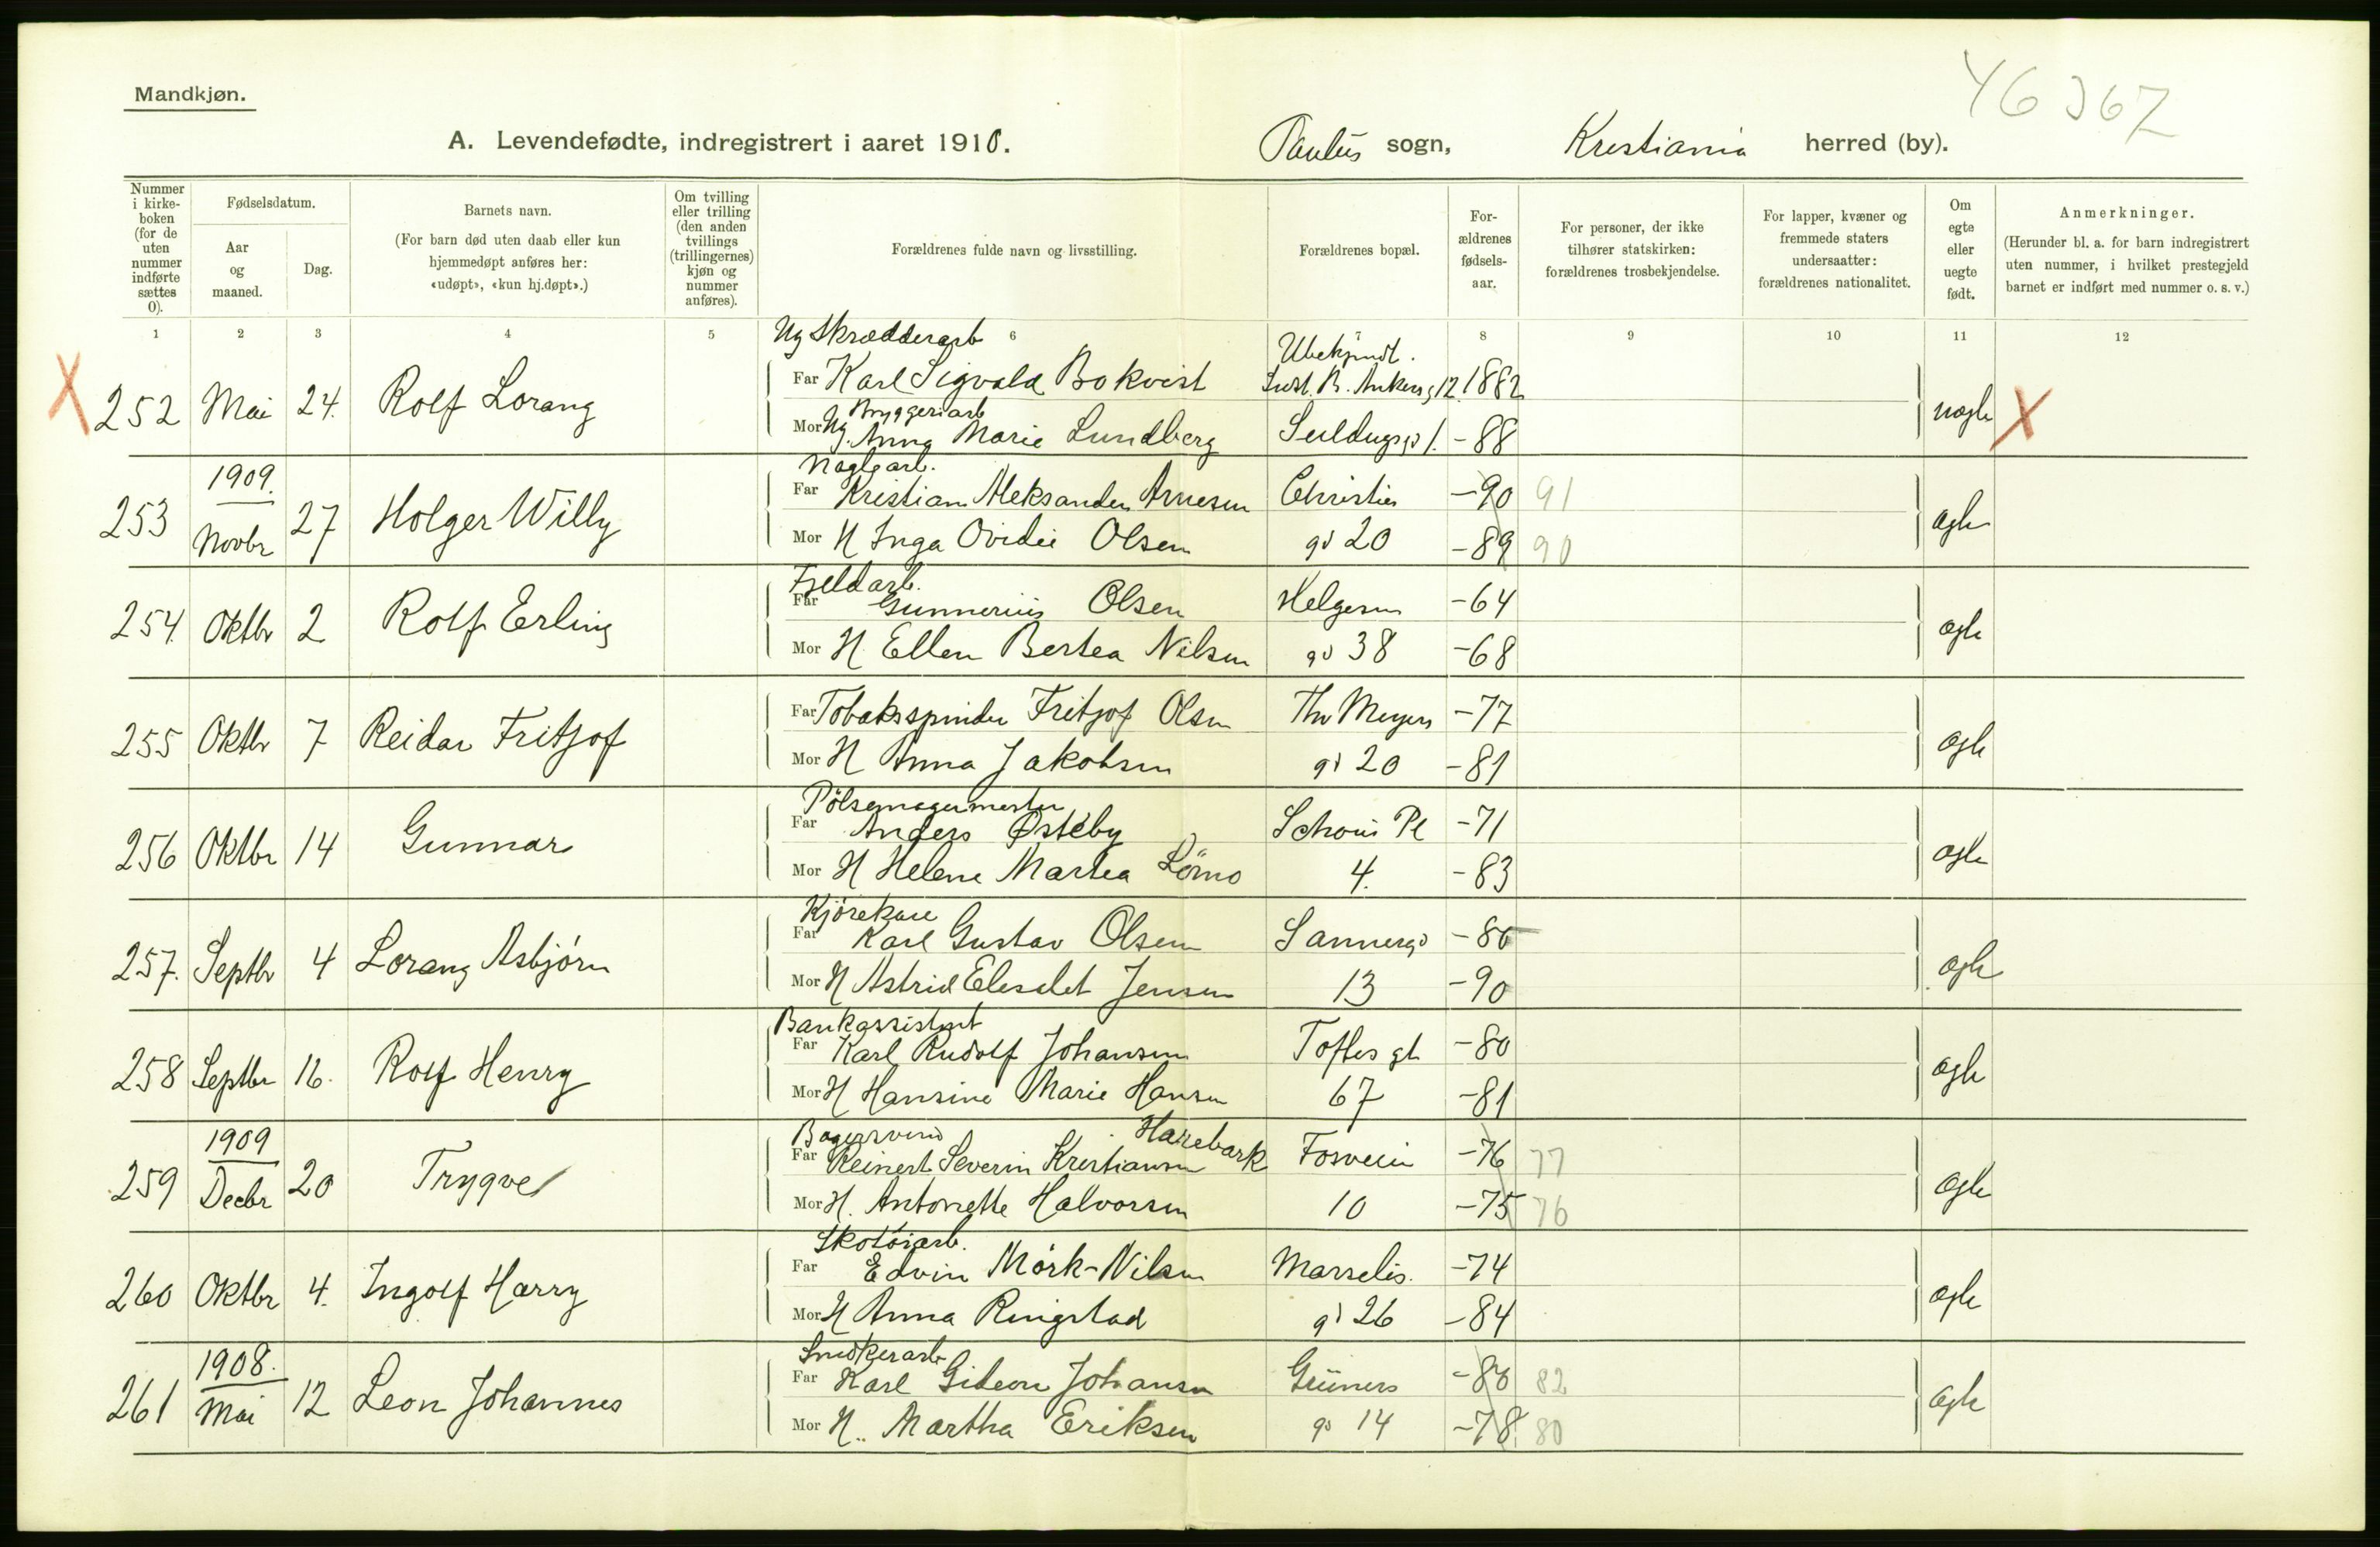 Mandkjøn.
46367
A. Levendefødte, indregistrert i aaret 1910. Paulus sogn, Kristiania herred (by).
Nummer i kirke-boken (for de uten nummer indførte sættes 0).
Fødselsdatum.
Aar og maaned.
Dag.
Barnets navn.
(For barn død uten daab eller kun hjemmedøpt anføres her: «udøpt», «kun hj.døpt».)
Om tvilling eller trilling (den anden tvillings (trillingernes) kjøn og nummer anføres).
Forældrenes fulde navn og livsstilling.
Forældrenes bopæl.
For-ældrenes fødsels-aar.
For personer, der ikke tilhører statskirken: forældrenes trosbekjendelse.
For lapper, kvæner og fremmede staters undersaatter: forældrenes nationalitet.
Om egte eller uegte født.
Anmerkninger.
(Herunder bl. a. for barn indregistrert uten nummer, i hvilket prestegjeld barnet er indført med nummer o. s. v.)
1 2 3 4 5 6 7 8 9 10 11 12
Ug Skrædderarb Ubekjendt.
X 252 Mai 24. Rolf Lorang Far Karl Sigvald Bokvist B. Ankersg 12. 1882
Bryggeriarb
Mor Ug. Anna Marie Lundberg 1. -88 uegte X
Naglearb.
253 1909. Novbr 27 Holger Willy Far Kristian Aleksander Arnesen Christies -90 91
Mor H Inga Ovidie Olsen gd 20 -89 90 ægte
Fjeldarb.
254. Oktbr 2 Rolf Erling Far Gunnerius Olsen Helgesens -64
Mor H Ellen Bertea Nilsen gd 38 -68 ægte
255 Oktbr 7 Reidar Fritjof Far Tobaksspinder Fritjof Olsen Thv Meyers -77
Mor H Anna Jakobsen gd 20 -81 ægte
Pølsemagermester
256 Oktbr 14 Gunnar Far Anders Østeby Schous Pl -71
Mor H Helene Martea Lömo 4. -83 ægte
Kjørekarl
257. Septbr 4 Lorang Asbjörn Far Karl Gustav Olsen Sannergd -86
Mor H Astrid Elesabet Jensen 13 -90 ægte
Bankassistent
258 Septbr 16. Rolf Henry Far Karl Rudolf Johansen Toftes gt -80
Mor H Hansine Marie Hansen 67 -81 ægte
Bagersvend Harebark
259 1909 Decbr 20 Trygve Far Reinert Severin Kristiansen Fosveien -76 77
Mor H. Antonette Halvorsen 10 -75 76 ægte
Skotöiarb.
260 Oktbr 4. Ingolf Harry Far Edvin Mörk-Nilsen Marselis. -74
Mor H Anna Ringstad gd 26 -84 ægte
Snedkerarb
261 1908. Mai 12 Leon Johannes Far Karl Gideon Johansen Grüners -80 82
Mor H.. Martha Eriksen gd 14 -78 80 ægte